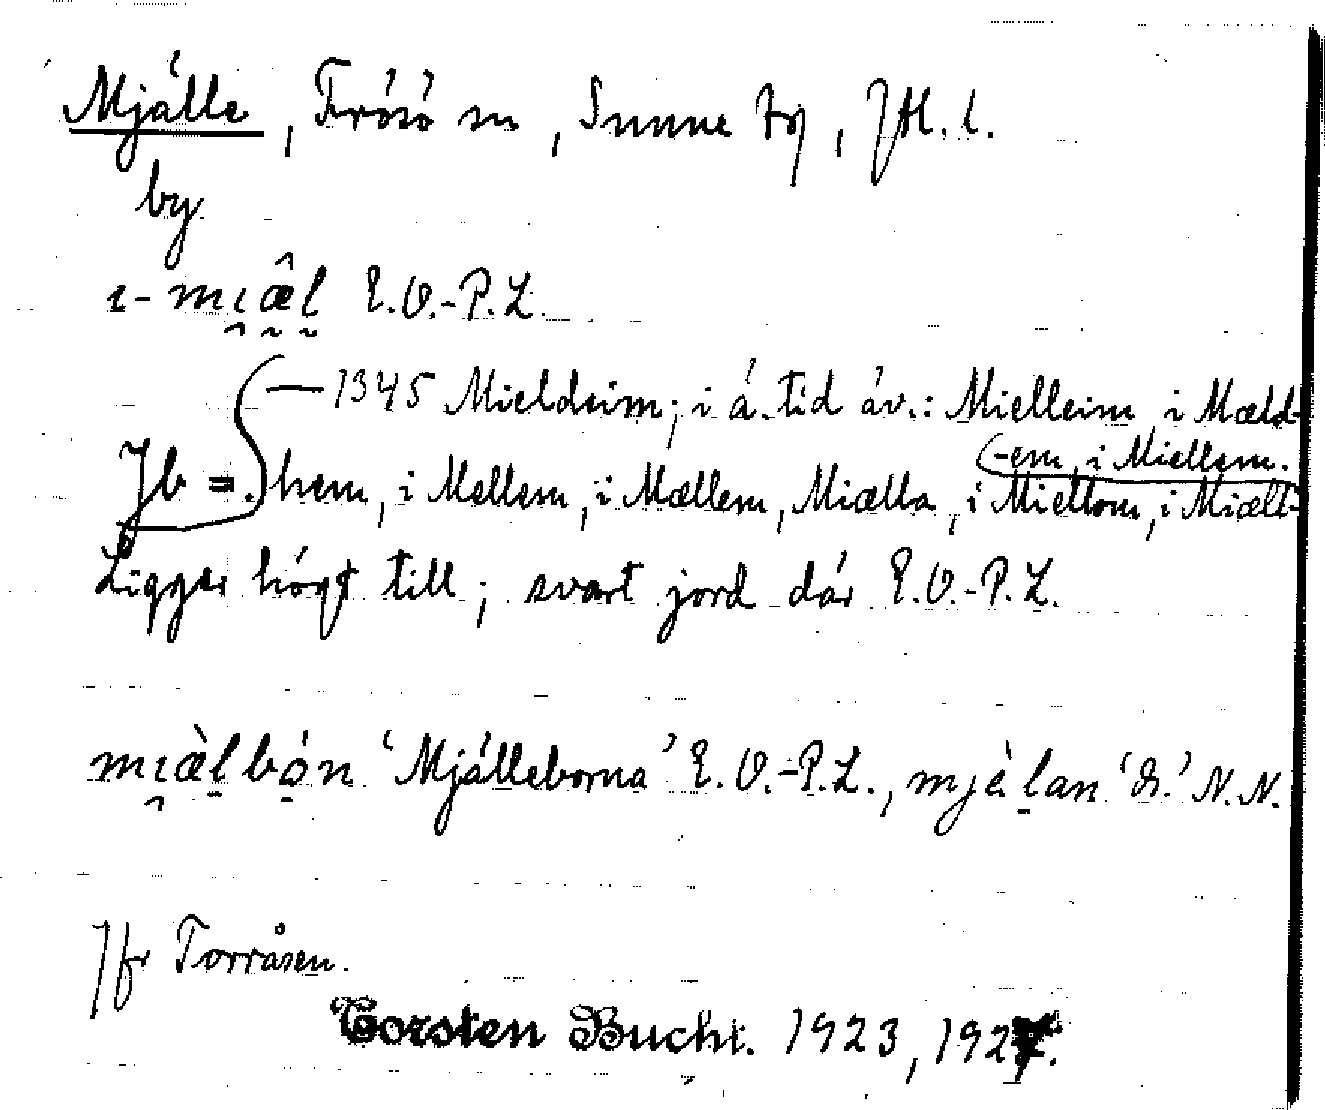 Mjälle, Frösö sn, Sunne tg, Jtl. l.
by
ı-mı̯æ̂l E.O.-P.L.
1345 Mieldeim; i ä. tid äv.: Mielleim, i Mæld-
-em, i Miellem.
Jb =. hem, i Mellem, i Mællem, Miælla, i Miellom, i Miæll-
Ligger högt till; svart jord där E.O.-P.L.
mı̯æ̀l̠bó̠n 'Mjälleborna' E.O.-P.L., mjèl̠an 'd:o' N.N.
Jfr Torråsen.
Torsten Bucht. 1923, 1927.